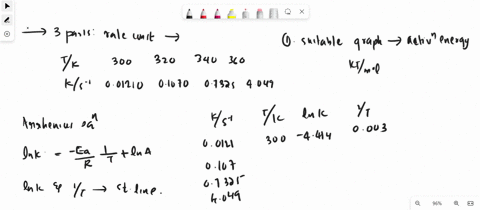 → 3 parts: rate const →
① suitable graph → activⁿ energy
KJ/mol
T/K 300 320 340 360
K/s⁻¹ 0.01210 0.1070 0.7325 4.049
Arrhenius eqⁿ
K/s⁻¹ T/K lnk 1/T
0.0121 300 -4.414 0.003
lnk = -Ea/R 1/T + lnA
0.107
0.7325
lnk & 1/T → st line.
4.049
96%